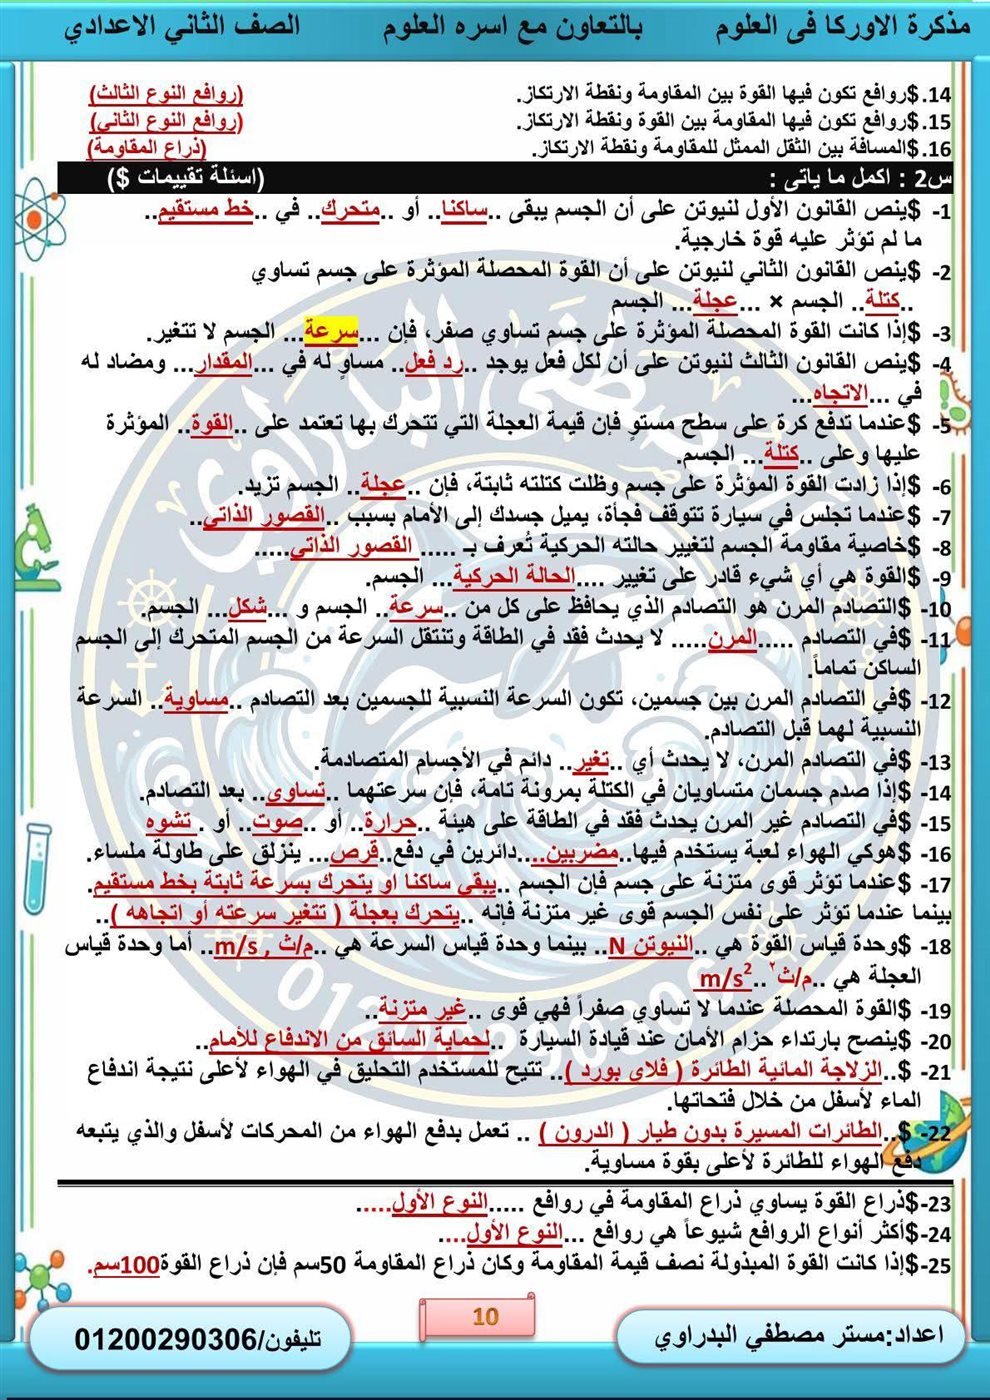 مذكرة الاوركا فى العلوم بالتعاون مع اسره العلوم الصف الثاني الاعدادي
14.$روافع تكون فيها القوة بين المقاومة ونقطة الارتكاز. (روافع النوع الثالث)
15.$روافع تكون فيها المقاومة بين القوة ونقطة الارتكاز. (روافع النوع الثاني)
16.$المسافة بين الثقل الممثل للمقاومة ونقطة الارتكاز. (ذراع المقاومة)
س2 : اكمل ما ياتى : (اسئلة تقييمات $)
1- $ينص القانون الأول لنيوتن على أن الجسم يبقى ..ساكنا.. أو ..متحرك.. في ..خط مستقيم..
ما لم تؤثر عليه قوة خارجية.
2- $ينص القانون الثاني لنيوتن على أن القوة المحصلة المؤثرة على جسم تساوي
..كتلة.. الجسم × ...عجلة... الجسم
3- $إذا كانت القوة المحصلة المؤثرة على جسم تساوي صفر، فإن ...سرعة... الجسم لا تتغير.
4- $ينص القانون الثالث لنيوتن على أن لكل فعل يوجد ..رد فعل.. مساوٍ له في ...المقدار... ومضاد له
في ...الاتجاه...
5- $عندما تدفع كرة على سطح مستوٍ فإن قيمة العجلة التي تتحرك بها تعتمد على ..القوة.. المؤثرة
عليها وعلى ..كتلة... الجسم.
6- $إذا زادت القوة المؤثرة على جسم وظلت كتلته ثابتة، فإن ..عجلة.. الجسم تزيد.
7- $عندما تجلس في سيارة تتوقف فجأة، يميل جسدك إلى الأمام بسبب ..القصور الذاتي..
8- $خاصية مقاومة الجسم لتغيير حالته الحركية تُعرف بـ ..... القصور الذاتي.....
9- $القوة هي أي شيء قادر على تغيير ....الحالة الحركية... الجسم.
10- $التصادم المرن هو التصادم الذي يحافظ على كل من ..سرعة.. الجسم و ...شكل... الجسم.
11- $في التصادم .....المرن..... لا يحدث فقد في الطاقة وتنتقل السرعة من الجسم المتحرك إلى الجسم
الساكن تماماً.
12- $في التصادم المرن بين جسمين، تكون السرعة النسبية للجسمين بعد التصادم ..مساوية.. السرعة
النسبية لهما قبل التصادم.
13- $في التصادم المرن، لا يحدث أي ..تغير.. دائم في الأجسام المتصادمة.
14- $إذا صدم جسمان متساويان في الكتلة بمرونة تامة، فإن سرعتهما ..تساوي.. بعد التصادم.
15- $في التصادم غير المرن يحدث فقد في الطاقة على هيئة ..حرارة.. أو ..صوت.. أو . تشوه
16- $هوكي الهواء لعبة يستخدم فيها..مضربين....دائرين في دفع..قرص... ينزلق على طاولة ملساء.
17- $عندما تؤثر قوى متزنة على جسم فإن الجسم ..يبقي ساكنا او يتحرك بسرعة ثابتة بخط مستقيم.
بينما عندما تؤثر على نفس الجسم قوى غير متزنة فانه ..يتحرك بعجلة ( تتغير سرعته أو اتجاهه )..
18- $وحدة قياس القوة هي ..النيوتن N.. بينما وحدة قياس السرعة هي ..م/ث , m/s.. أما وحدة قياس
العجلة هي ..م/ث٢ .. m/s2
19- $القوة المحصلة عندما لا تساوي صفراً فهي قوى ..غير متزنة..
20- $ينصح بارتداء حزام الأمان عند قيادة السيارة ..لحماية السائق من الاندفاع للأمام..
21- $..الزلاجة المائية الطائرة ( فلاي بورد ).. تتيح للمستخدم التحليق في الهواء لأعلى نتيجة اندفاع
الماء لأسفل من خلال فتحاتها.
22- $..الطائرات المسيرة بدون طيار ( الدرون ) .. تعمل بدفع الهواء من المحركات لأسفل والذي يتبعه
دفع الهواء للطائرة لأعلى بقوة مساوية.
23-$ذراع القوة يساوي ذراع المقاومة في روافع .....النوع الأول.....
24-$أكثر أنواع الروافع شيوعاً هي روافع ...النوع الأول....
25-$إذا كانت القوة المبذولة نصف قيمة المقاومة وكان ذراع المقاومة 50سم فإن ذراع القوة100سم.
10
اعداد:مستر مصطفي البدراوي
تليفون/01200290306